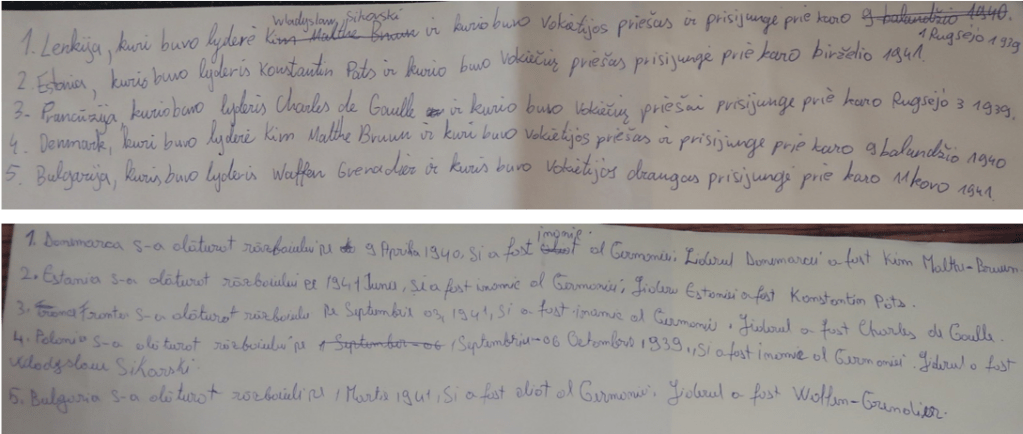 Wladyslaw Sikorski
1. Lenkija, kuri buvo lyderė Kim Malthe Bruun ir kurio buvo Vokietijos priešas ir prisijungė prie karo 9 balandžio 1940.
1 Rugsėjo 1939
2. Estania, kuris buvo lyderis Konstantin Pats ir kurio buvo Vokiečių priešas prisijungė prie karo birželio 1941.
3. Prancūzija, kurio buvo lyderis Charles de Gaulle ir kurio buvo Vokiečių priešai prisijungė prie karo Rugsėjo 3 1939.
4. Denmark, kuri buvo lyderė Kim Malthe Bruun ir kuri buvo Vokietijos priešas ir prisijungė prie karo 9 balandžio 1940
5. Bulgarija, kuris buvo lyderis Waffen Grenadier ir kuris buvo Vokietijos draugas prisijungė prie karo 11 kovo 1941.
inamic
1. Danemarca s-a alăturat războiului pe 9 Aprilie 1940, Și a fost al Germaniei. Liderul Danemarcii a fost Kim Malthi-Bruun.
2. Estania s-a alăturat războiului pe 1941 June, Și a fost inamic al Germaniei; Lideru Estoniei a fost Konstantin Pats.
3. Franta s-a alăturat războiulu Pe Septembrie 03, 1941, Și a fost inamic al Germanii. Liderul a fost Charles de Gaulle.
4. Polonia s-a alăturat războiului pe 1 September-06 1 Septembrie-06 Octombre 1939., Și a fost inamic al Germaniei. Liderul a fost
Wladyslaw Sikarski.
5. Bulgaria s-a alăturat războiuli pe 1 Martie 1941, Și a fost aliat al Germanii. Liderul a fost Waffen-Grendier.